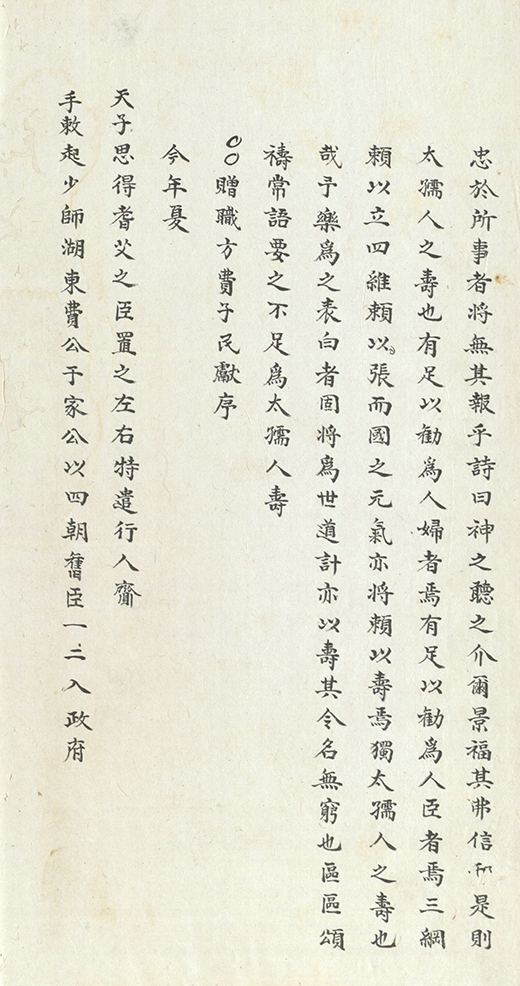 忠於所事者將無其報乎詩曰神之聽之介爾景福其弗信和是則
太孺人之壽也有足以勸爲人婦者焉有足以勸爲人臣者焉三綱
頼以立四維頼以張而國之元氣亦將頼以壽焉獨太孺人之壽也
哉予樂爲之表白者固將爲世道計亦以壽其令名無窮也區區頌
禱常語要之不足爲太孺人壽
○○贈職方費子民獻序
今年夏
天子思得耆父之臣置之左右特遣行人齎
手敕起少師湖東費公于家公以四朝舊臣一二入政府